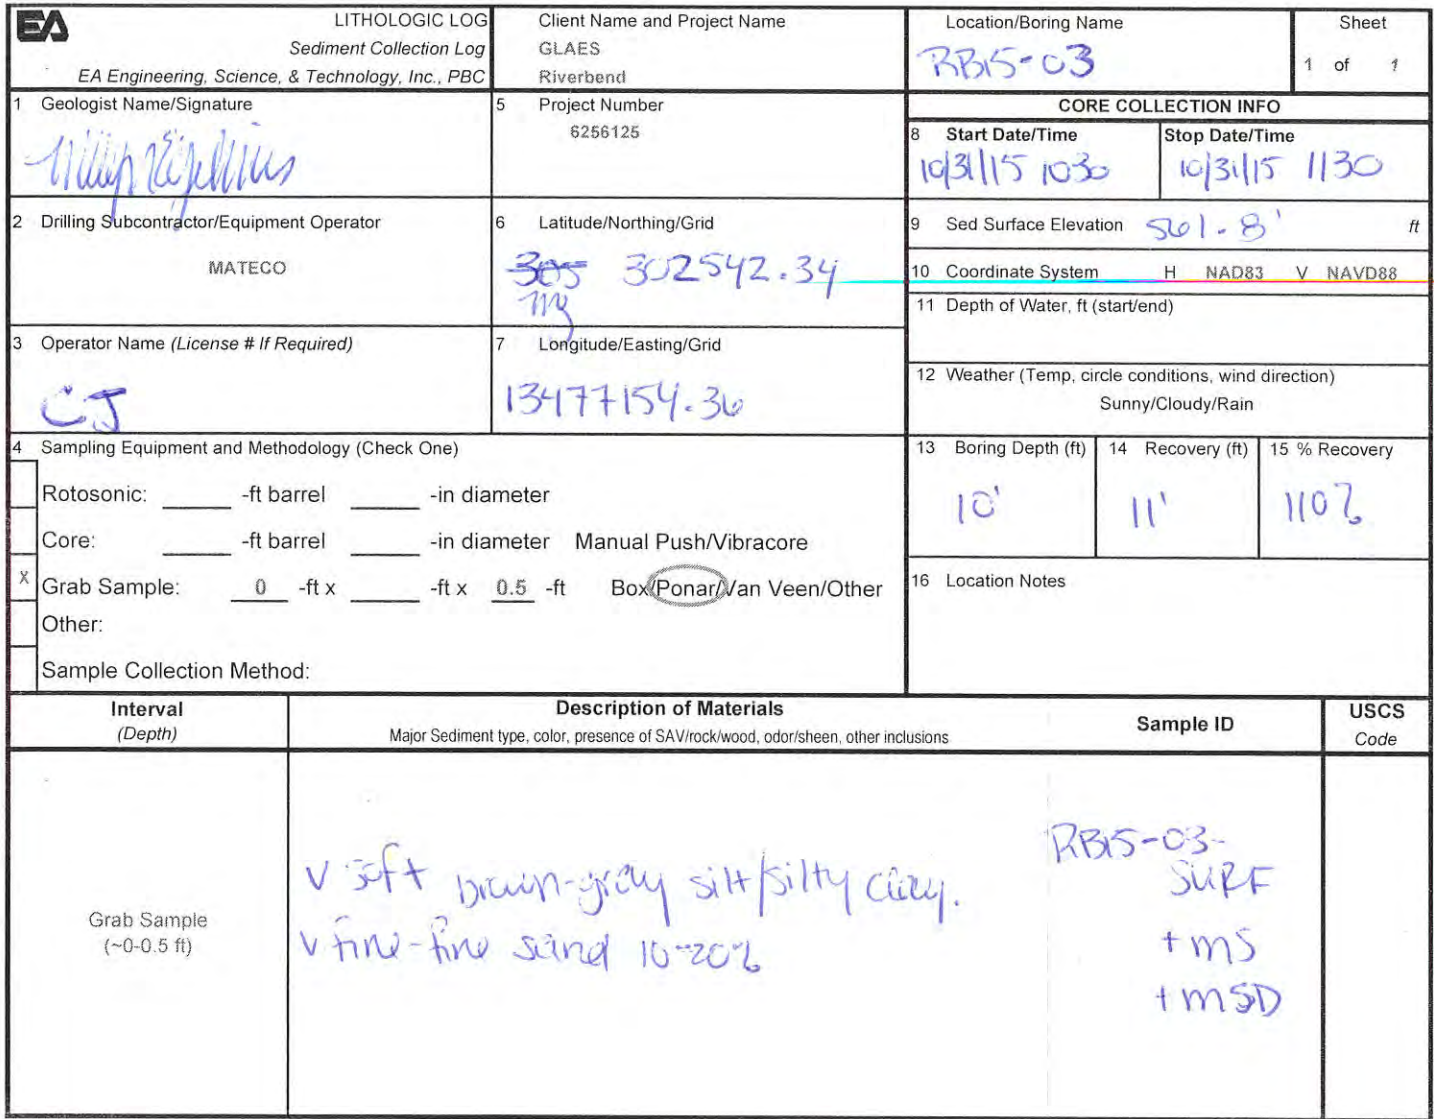 EA
LITHOLOGIC LOG
Sediment Collection Log
EA Engineering, Science, & Technology, Inc., PBC
Client Name and Project Name
GLAES
Riverbend
Location/Boring Name
RB15-03
Sheet
1 of 1
1 Geologist Name/Signature
5 Project Number
6256125
CORE COLLECTION INFO
8 Start Date/Time
10/31/15 1030
Stop Date/Time
10/31/15 1130
2 Drilling Subcontractor/Equipment Operator
MATECO
6 Latitude/Northing/Grid
305 302542.34
9 Sed Surface Elevation 561.8' ft
10 Coordinate System H NAD83 V NAVD88
11 Depth of Water, ft (start/end)
3 Operator Name (License # If Required)
CJ
7 Longitude/Easting/Grid
13477154.36
12 Weather (Temp, circle conditions, wind direction)
Sunny/Cloudy/Rain
4 Sampling Equipment and Methodology (Check One)
Rotosonic: -ft barrel -in diameter
Core: -ft barrel -in diameter Manual Push/Vibracore
X Grab Sample: 0 -ft x -ft x 0.5 -ft Box/Ponar/Van Veen/Other
Other:
Sample Collection Method:
13 Boring Depth (ft)
10'
14 Recovery (ft)
11'
15 % Recovery
110%
16 Location Notes
Interval
(Depth)
Description of Materials
Major Sediment type, color, presence of SAV/rock/wood, odor/sheen, other inclusions
Sample ID
USCS
Code
Grab Sample
(~0-0.5 ft)
V soft brown-gray silt/silty clay.
V fine-fine sand 10-20%
RB15-03-
SURF
+ MS
+ MSD